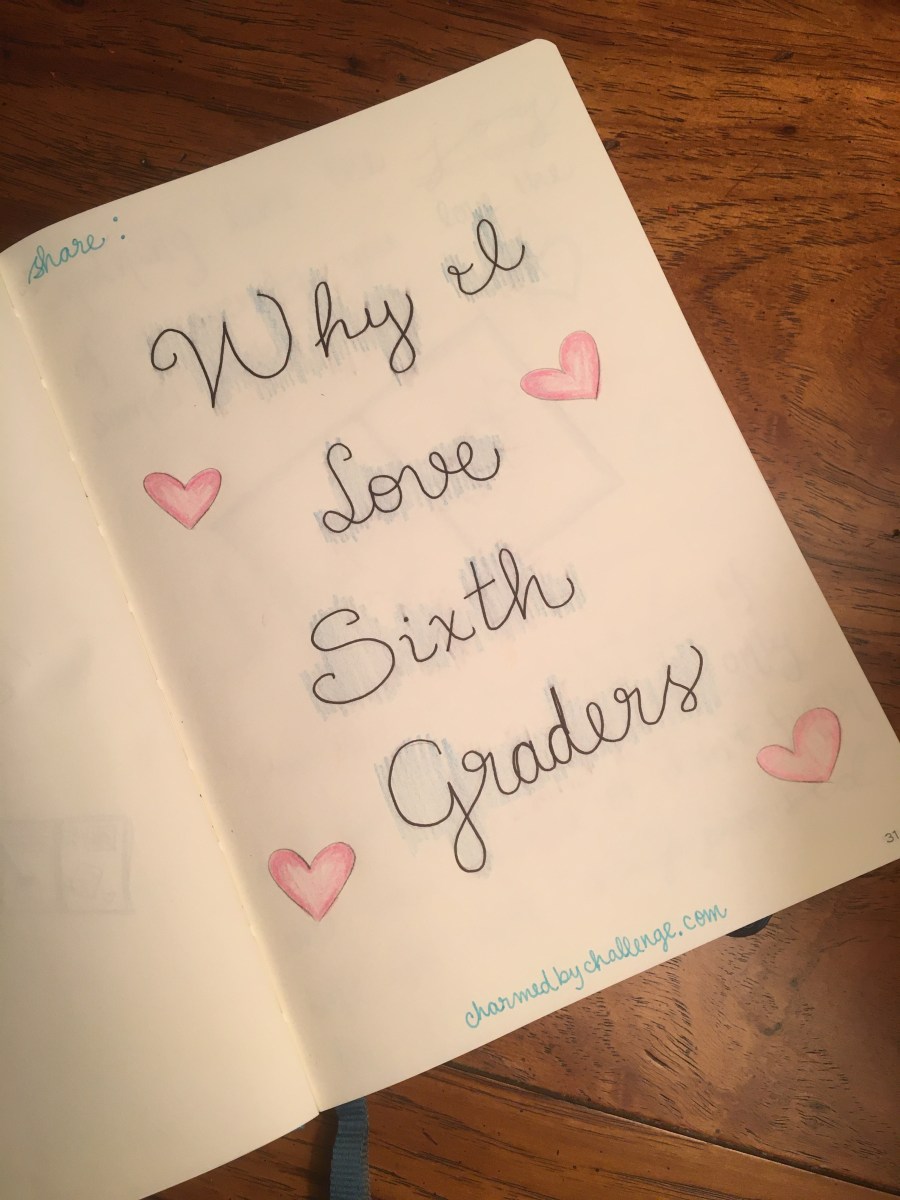 share:
Why I
Love
Sixth
Graders
31
charmedbychallenge.com